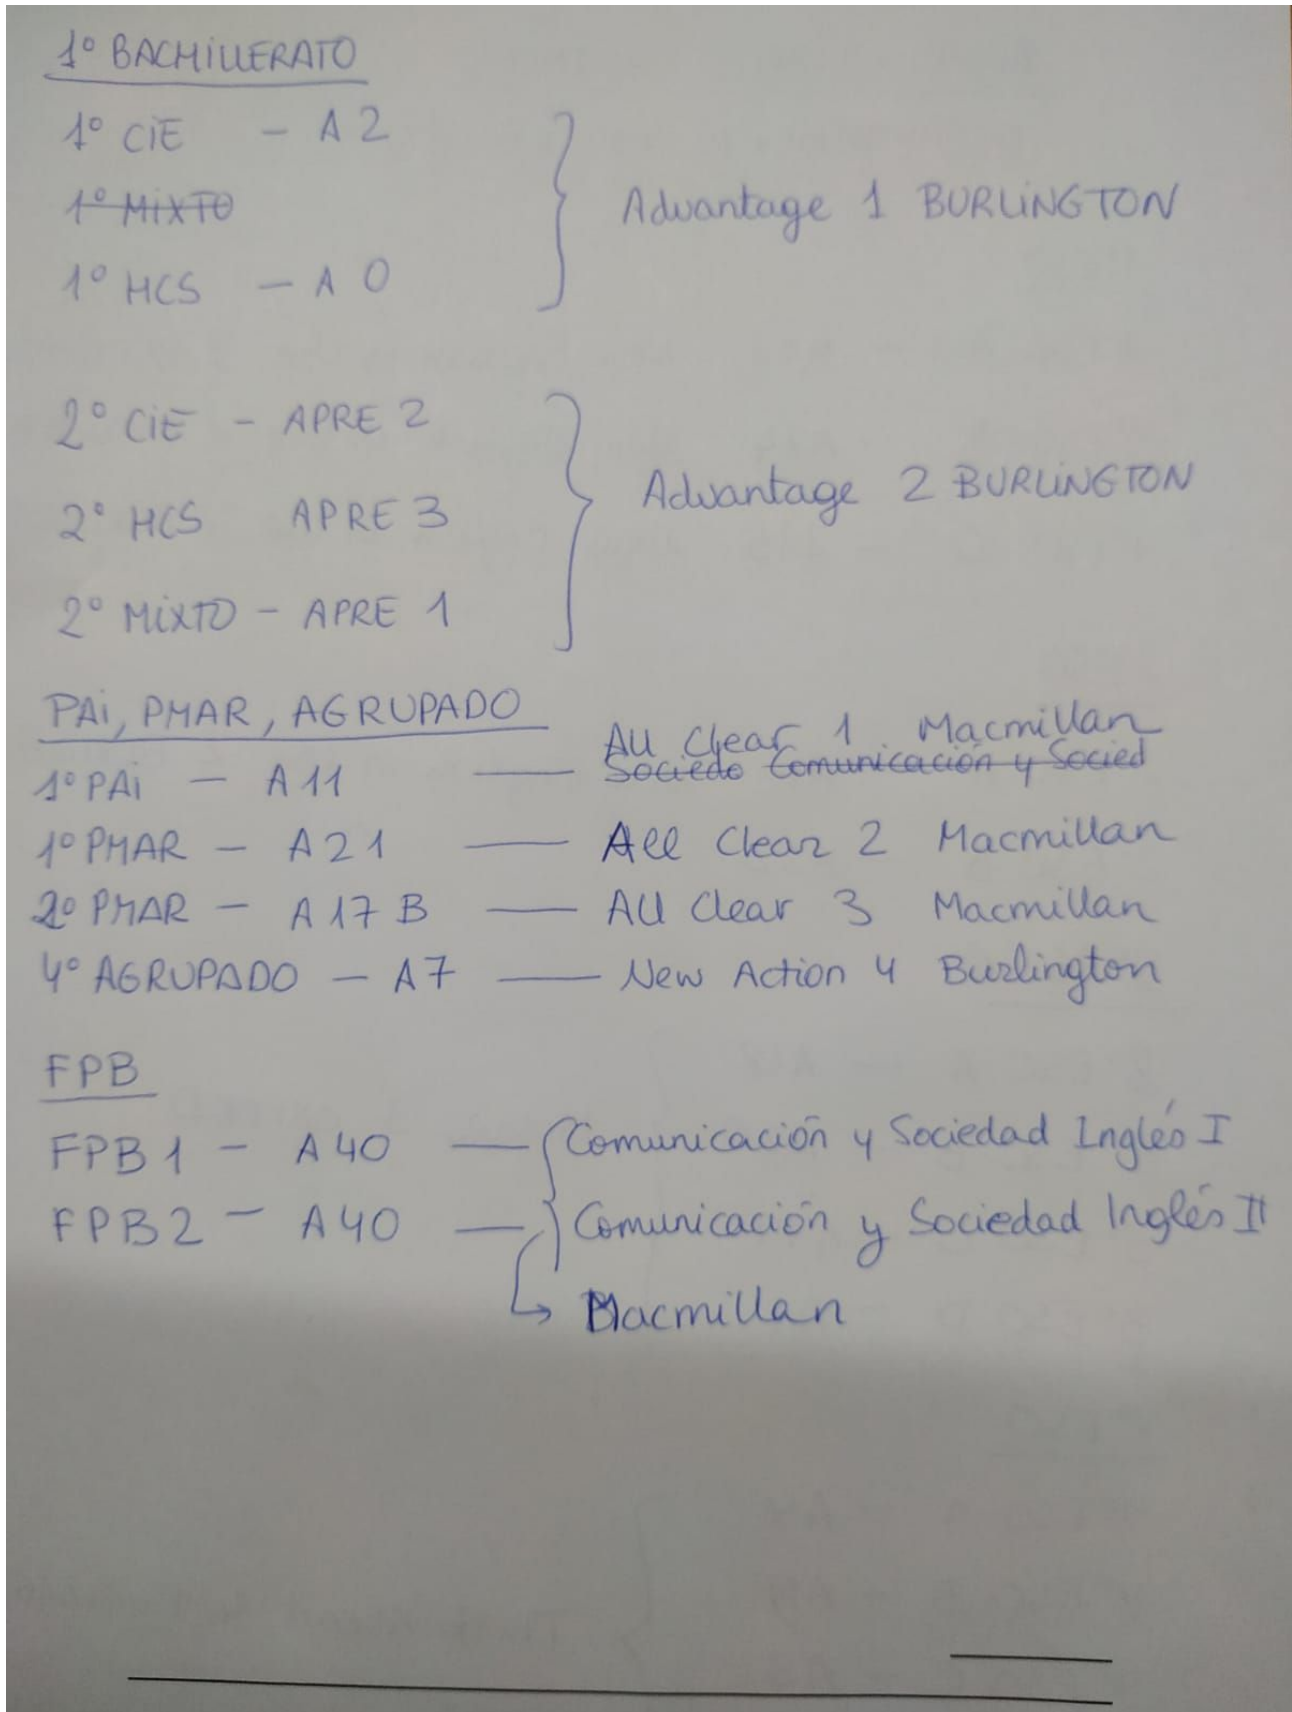 1º BACHILLERATO
1º CIE - A 2
1º MIXTO
Advantage 1 BURLINGTON
1º HCS - A 0
2º CIE - APRE 2
Advantage 2 BURLINGTON
2º HCS APRE 3
2º MIXTO - APRE 1
PAI, PMAR, AGRUPADO
All Clear 1 Macmillan
1º PAI - A 11 — Sociedo Comunicación y Socied
1º PMAR - A 21 — All Clear 2 Macmillan
2º PMAR - A 17 B — All Clear 3 Macmillan
4º AGRUPADO - A7 — New Action 4 Burlington
FPB
FPB 1 - A 40 — Comunicación y Sociedad Inglés I
FPB 2 - A 40 — Comunicación y Sociedad Inglés II
Macmillan